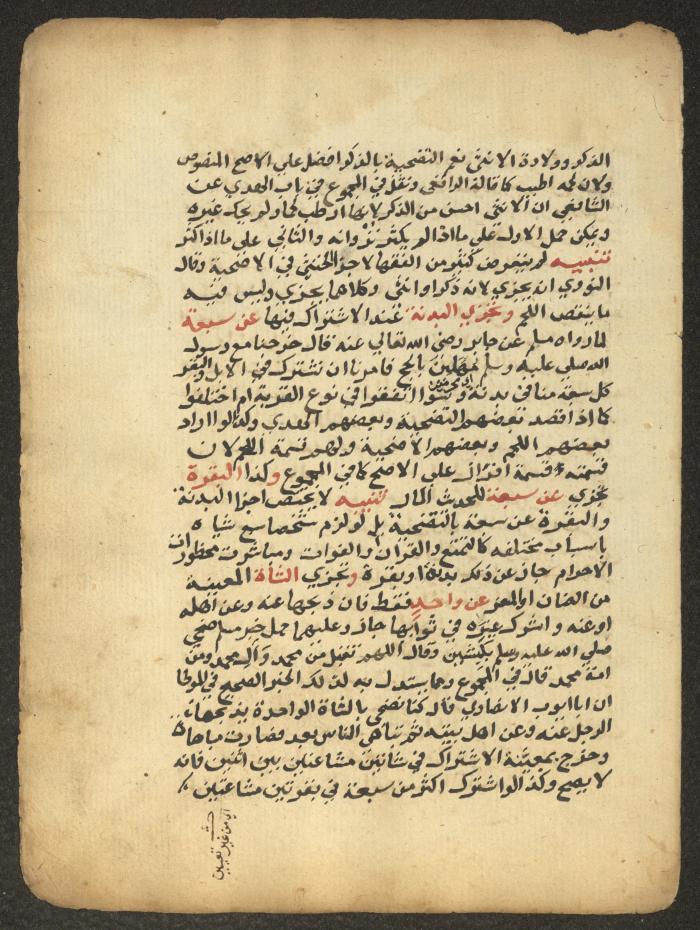 الذكر وولادة الانثى نعم التضحية بالذكر افضل على الاصح المنصوص
ولان لحمه اطيب كما قاله الرافعي ونقل في المجموع في باب الهدي عن
الشافعي ان الانثى احسن من الذكر لانها ارطب لحما ولم يحك غيره
ويمكن حمل الاول على ما اذا لم يكثر نزوانه والثاني على ما اذا كثر
تنبيه لم يتعرض كثير من الفقها لاجزا الخنثى في الاضحية وقال
النووي انه يجزي لانه ذكر او انثى وكلاهما يجزي وليس فيه
ما ينقص اللحم وتجزي البدنة عند الاشتراك فيها عن سبعة
لما رواه مسلم عن جابر رضي الله تعالى عنه قال خرجنا مع رسول
الله صلى عليه وسلم مهلين بالحج فامرنا ان نشترك في الابل والبقر
كل سبعة منا في بدنة وسوا اتفقوا في نوع القربة ام اختلفوا
كما اذا قصد بعضهم التضحية وبعضهم الهدي وكذا لو اراد
بعضهم اللحم وبعضهم الاضحية ولهم قسمة اللحم لان
قسمته قسمة افراز على الاصح كما في المجموع وكذا البقرة
تجزي عن سبعة للحديث المار تنبيه لا يختص اجزا البدنة
والبقرة عن سبعة بالتضحية بل لو لزم شخصا سبع شياه
باسباب مختلفة كالتمتع والقران والفوات ومباشرت محظورات
الاحرام جاز عن ذلك بدنة او بقرة وتجزي الشاة المعينة
من الضان او المعز عن واحد فقط فان ذبحها عنه وعن اهله
او عنه واشرك غيره في ثوابها جاز وعليهما حمل خبر مسلم ضحى
صلى الله عليه وسلم بكبشين وقال اللهم تقبل من محمد وآل محمد ومن
امة محمد قال في المجموع ومما يستدل به لذلك الخبر الصحيح في الموطا
ان ابا ايوب الانصاري قال كنا نضحي بالشاة الواحدة يذبحها
الرجل عنه وعن اهل بيته ثم تباهى الناس بعد فصارت مباهاة
وخرج بمعينة الاشتراك في شاتين مشاعتين بين اثنين فانه
لا يصح وكذا لو اشترك اكثر من سبعة في بقرتين مشاعتين
اي من غير تعيين